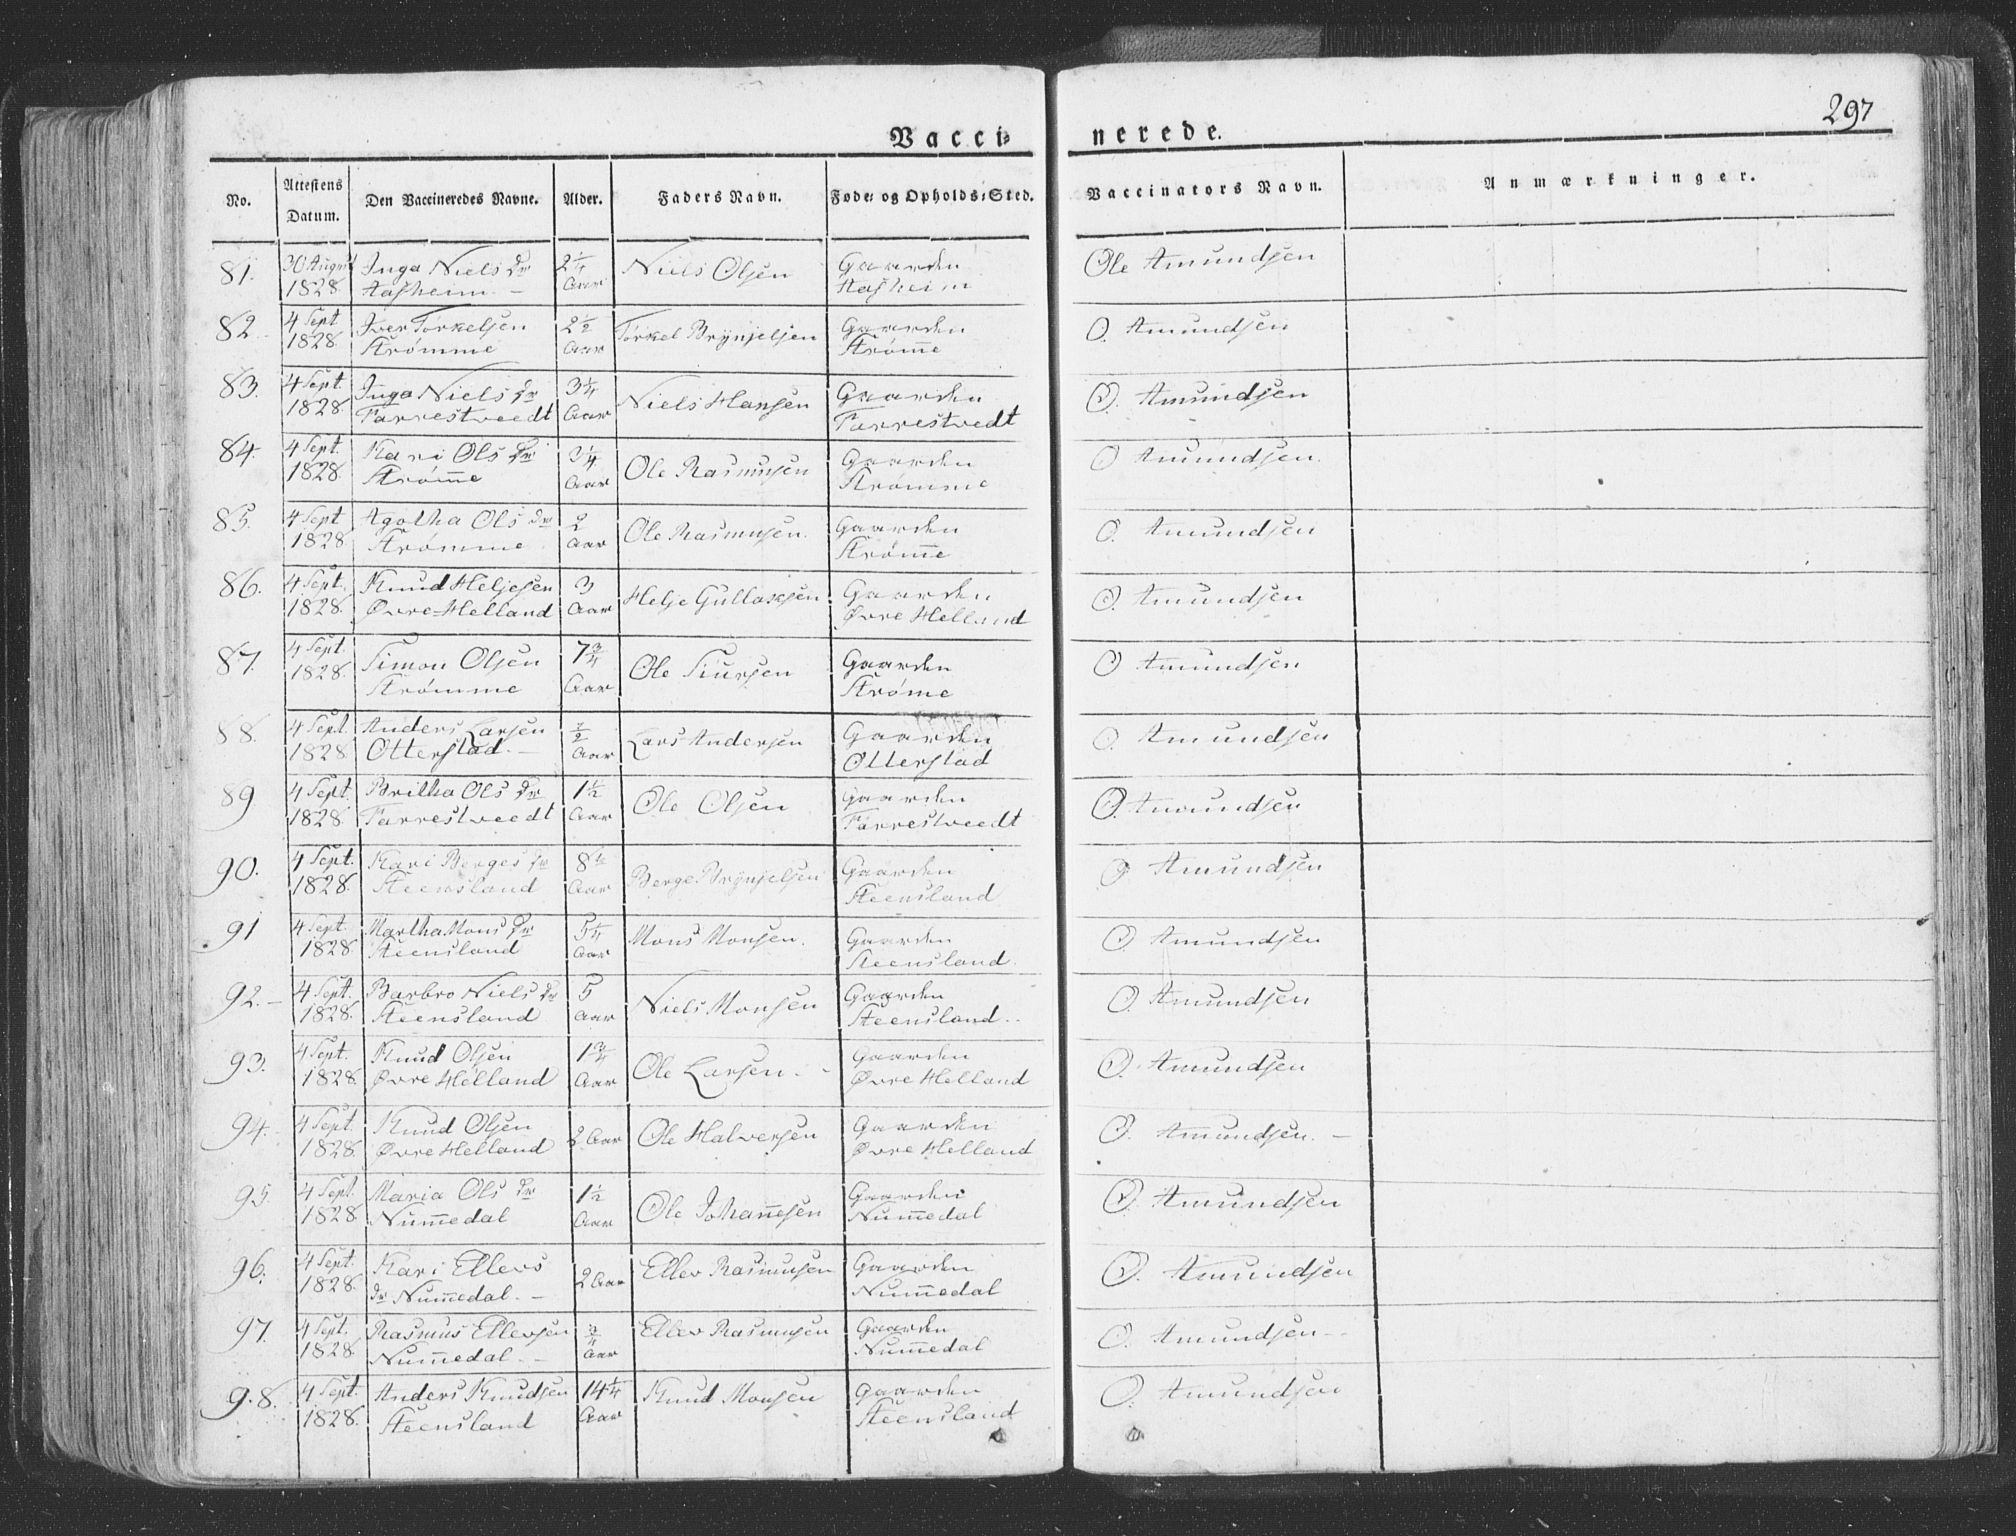 297
Vacci- nerede.
No. Attestens Datum. Den Vaccineredes Navne. Alder. Faders Navn. Føde- og Opholds-Sted. Vaccinators Navn. Anmærkninger.
81. 30 August 1828 Inga Niels Dr Aasheim 2 1/4 Aar Niels Olsen Gaarden Aasheim Ole Amundsen
82 4 Sept 1828 Iver Torkelsen Strømme 2 1/2 Aar Torkel Brynjelsen Gaarden Strøm̅e O. Amundsen
83. 4 Sept. 1828 Inga Niels Dr Farrestveedt 3 1/4 Aar Niels Hansen Gaarden Farrestvedt O. Amundsen
84. 4 Sept. 1828 Kari Ols Dr Strøm̅e 3 1/4 Aar Ole Rasmusen Gaarden Strømme O Amundsen.
85. 4 Sept 1828 Agotha Ols Dr Strømme 2 Aar Ole Rasmusen. Gaarden Strøm̅e O. Amundsen
86. 4 Sept. 1828 Knud Heljesen Øvre-Helland 3 Aar Helje Gullacsen Gaarden Øvre Helland O. Amundsen
87. 4 Sept. 1828. Simon Olsen Strømme 7 3/4 Aar Ole Siursen Gaarden Strøme O Amundsen
88. 4 Sept. 1828 Anders Larsen Otterstad. 1/2 Aar Lars Andersen Gaarden Otterstad O. Amundsen
89 4 Sept. 1828 Britha Ols Dr Farrestveedt 1 1/2 Aar Ole Olsen Gaarden Farrestveedt O. Amundsen
90. 4 Sept. 1828. Kari Berges Dr Steensland 8 1/2 Aar Berge Brynjelsen Gaarden Steensland O Amundsen
91 4 Sept. 1828. Martha Mons Dr Steensland 5 1/4 Aar Mons Monsen. Gaarden Steensland. O. Amundsen
92. 4 Sept. 1828. Barbro Niels Dr Steensland 5 Aar Niels Monsen Gaarden Steensland. O. Amundsen
93. 4 Sept. 1828. Knud Olsen Øvre Helland 1 3/4 Aar Ole Larsen. Gaarden Øvre Helland O. Amundsen
94. 4 Sept. 1828. Knud Olsen Øvre Helland 2 Aar Ole Halversen Gaarden Øvre Helland O. Amundsen.
95. 4 Sept. 1828 Maria Ols Dr Num̅edal 1 1/2 Aar Ole Johan̅esen Gaarden Num̅edal O. Amundsen
96. 4 Sept. 1828. Kari Ellevs Dr Num̅edal. 2 Aar Ellev Rasmusen Gaarden Num̅edal O. Amundsen
97. 4 Sept. 1828. Rasmus Ellevsen Num̅edal. 3/4 Aar Ellev Rasmusen Gaarden Num̅edal O. Amundsen
98. 4 Sept. 1828. Anders Knudsen Steensland 14 1/4 Aar Knud Monsen Gaarden Steensland O. Amundsen